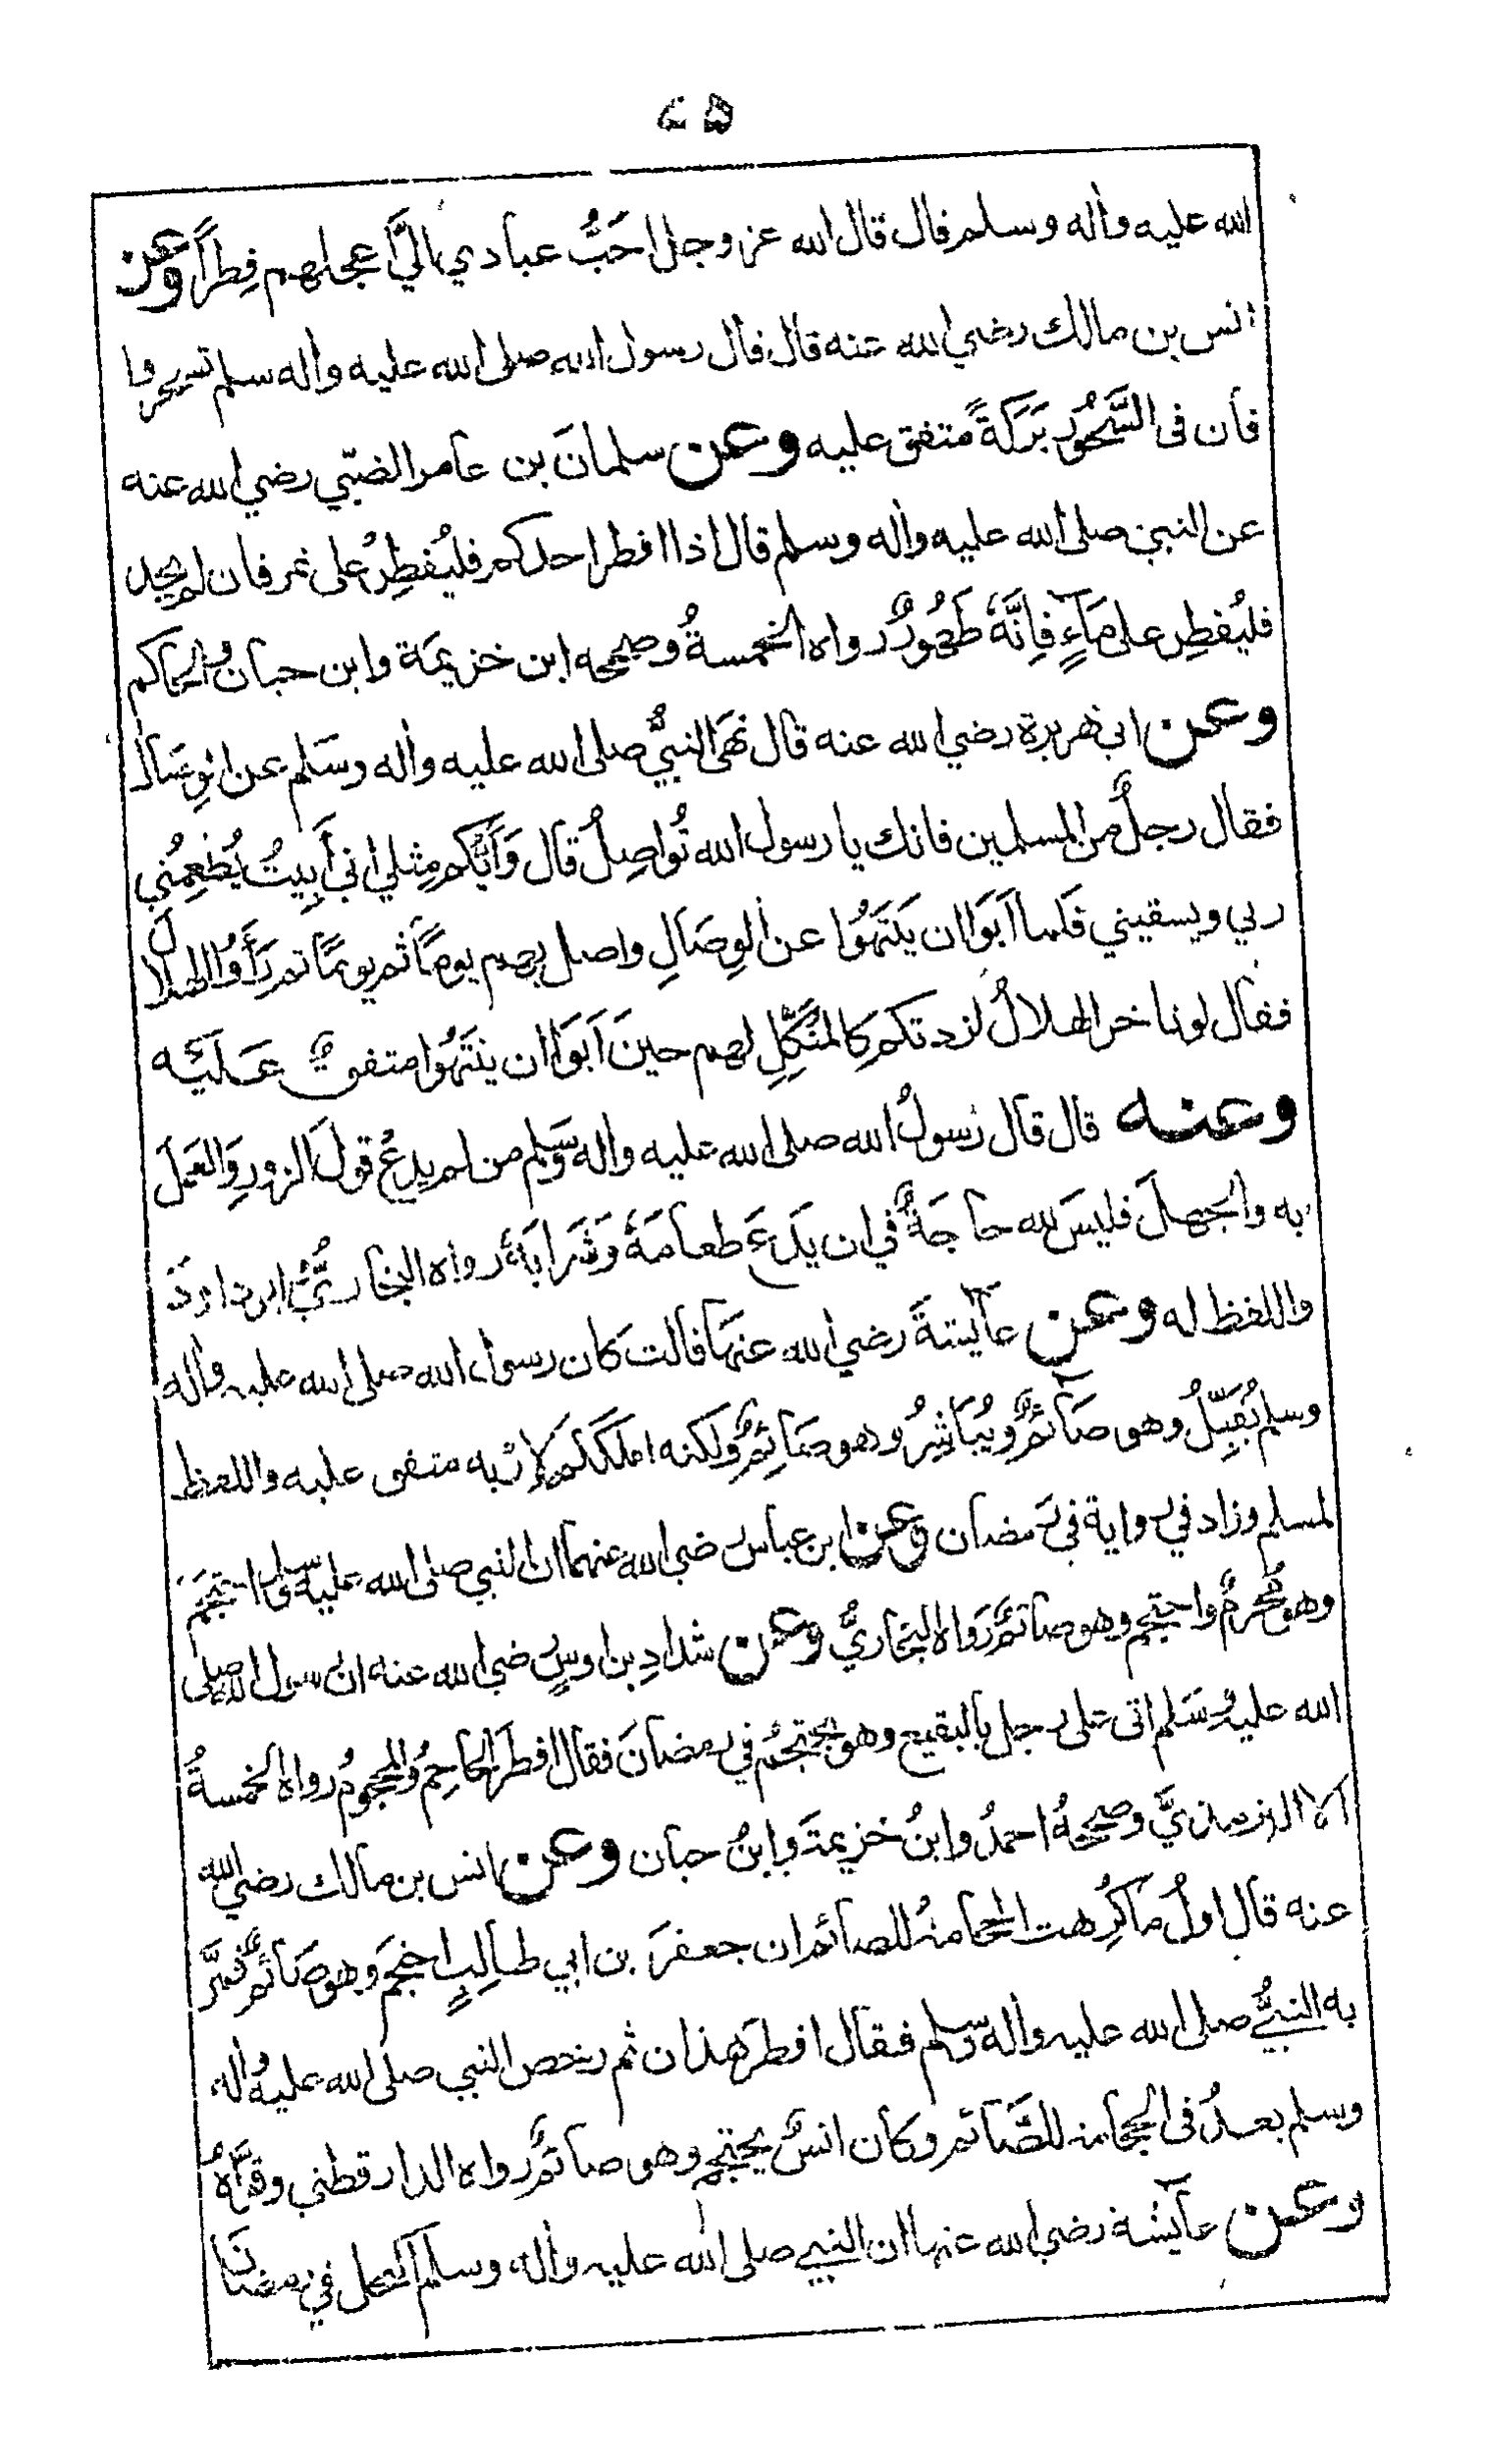 ٧٥
الله عليه واله وسلم قال قال الله عز وجل احَبُّ عبادي اليَّ اعجلهم فِطرًا وعن
انس بن مالك رضي الله عنه قال قال رسول الله صلى الله عليه واله سلم تسحروا
فان فى السَّحُورِ بَرَكَةً متفق عليه وعن سلمانَ بن عامر الضبّي رضي الله عنه
عن النبي صلى الله عليه واله وسلم قال اذا افطر احدكم فليُفطِرْ على تمر فان لم يجد
فليُفطِر على مَآءٍ فاِنَّهٗ طَهُورٌ رواه الخمسةُ وصححه ابن خزيمَة وابن حبان والحاكم
وعن ابي هريرة رضي الله عنه قال نَهَى النبيُّ صلى الله عليه واله وسَلم عن الوِصَال
فقال رجلٌ من المسلمين فانك يا رسول الله تُواصِلُ قال وَاَيُّكم مِثلي اني اَبِيتُ يُطْعِمُني
ربي ويسقيني فَلما اَبَوا ان يَنتَهُوا عن الوِصَالِ واصل بهم يومًا ثم يومًا ثم رَأَوُا الهلال
فقال لو تاخر الهلالُ لزدتكم كَالمُنَكِّلِ لهم حينَ اَبَوَا ان ينتَهُوا متفق عَلَيْه
وعنه قال قال رسولُ الله صلى الله عليه واله وَسَلم من لم يدعْ قولَ الزورِ وَالعَمَلَ
به والجهلَ فليسَ لله حاجَةٌ في ان يَدَعَ طعامَهٗ وَشَرَابَهٗ رواه البخاريُّ وابو داودَ
واللفظ له وعن عآيشةَ رضي الله عنهَا قالت كان رسول الله صلى الله عليه واله
وسلم يُقبِّلُ وهو صَآئمٌ ويُبَاشِرُ وهو صَائِمٌ ولكنه املككم لاِرْبه متفق عليه واللفظ
لمسلم وزاد في رواية في رمضان وعن ابن عباس رضي الله عنهما ان النبي صلى الله عليه وسلم احتجَمَ
وهو مُحْرِمٌ واحتجم وهو صائمٌ رَوَاه البخاريُّ وعن شدادِ بن اوسٍ رضي الله عنه ان رسول الله صلى
الله عليه وسَلم اتى على رجل بالبقيع وهو يحتجمُ في رمضانَ فقال افطَرَ الحاجِمُ والمحجومُ رواه الخمسةُ
الا الترمذيَّ وصححهُ احمدُ وابنُ خزيمةَ وابنُ حبان وعن انس بن مالك رضي الله
عنه قال اولُ ما كُرِهت الحجامةُ للصائم ان جعفرَ بن ابي طالِبٍ احتجم وهو صَائمٌ فمرَّ
به النبيُّ صلى الله عليه واله وسلم فقال افطرَ هذان ثم رخص النبي صلى الله عليه واله
وسلم بعدُ فى الحجامة للصَّائم وكان انسٌ يحتجم وهو صائمٌ رواه الدارقطني وقوَّاهُ
وعن عآئشة رضي الله عنها ان النبي صلى الله عليه واله وسلم اكتحل في رمضانَ